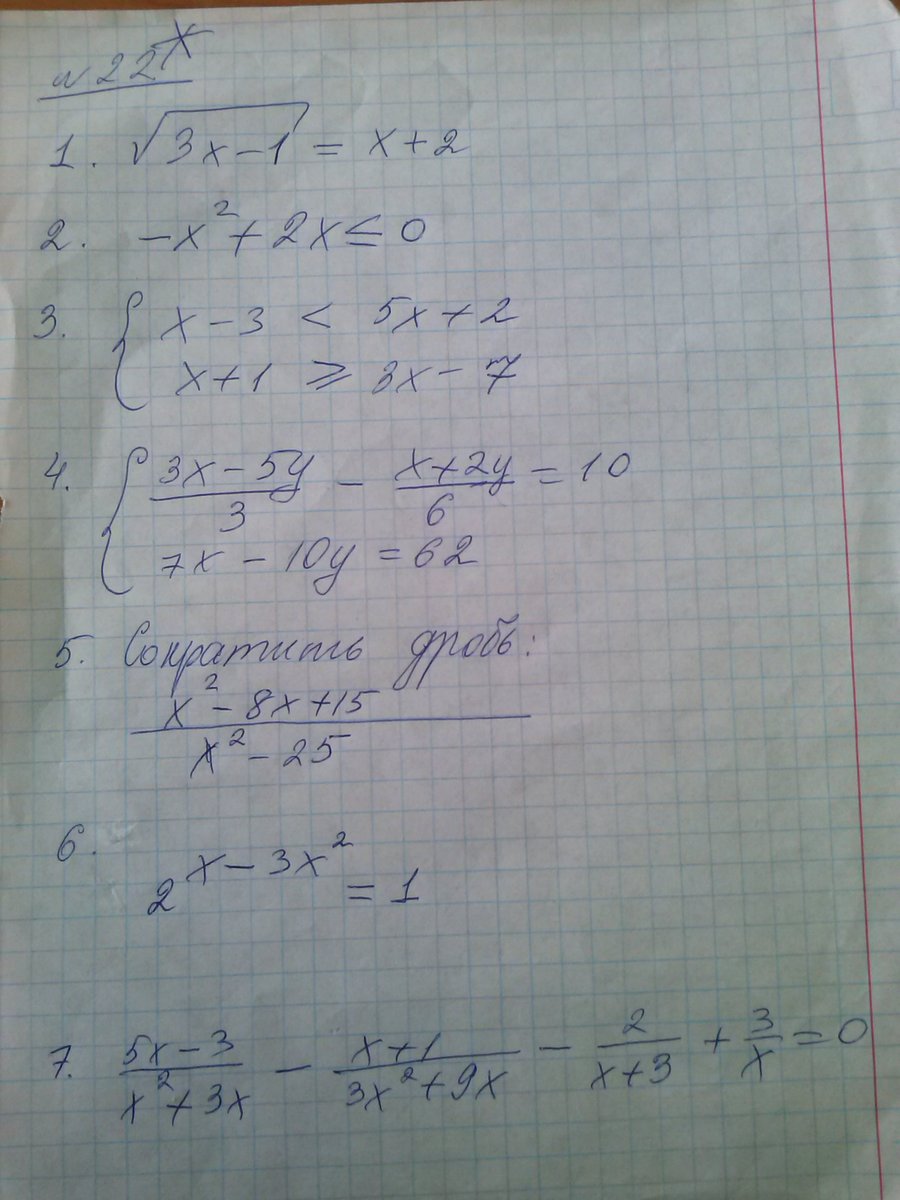 №22^x
1. √(3x-1) = x+2
2. -x²+2x ≤ 0
3. { x-3 < 5x+2
x+1 ≥ 3x-7
4. { (3x-5y)/3 - (x+2y)/6 = 10
7x - 10y = 62
5. Сократить дробь:
(x²-8x+15)/(x²-25)
6. 2^(x-3x²) = 1
7. (5x-3)/(x²+3x) - (x+1)/(3x²+9x) - 2/(x+3) + 3/x = 0